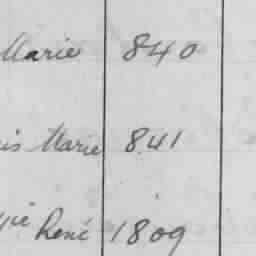 Marie 840
is Marie 841
René 1809